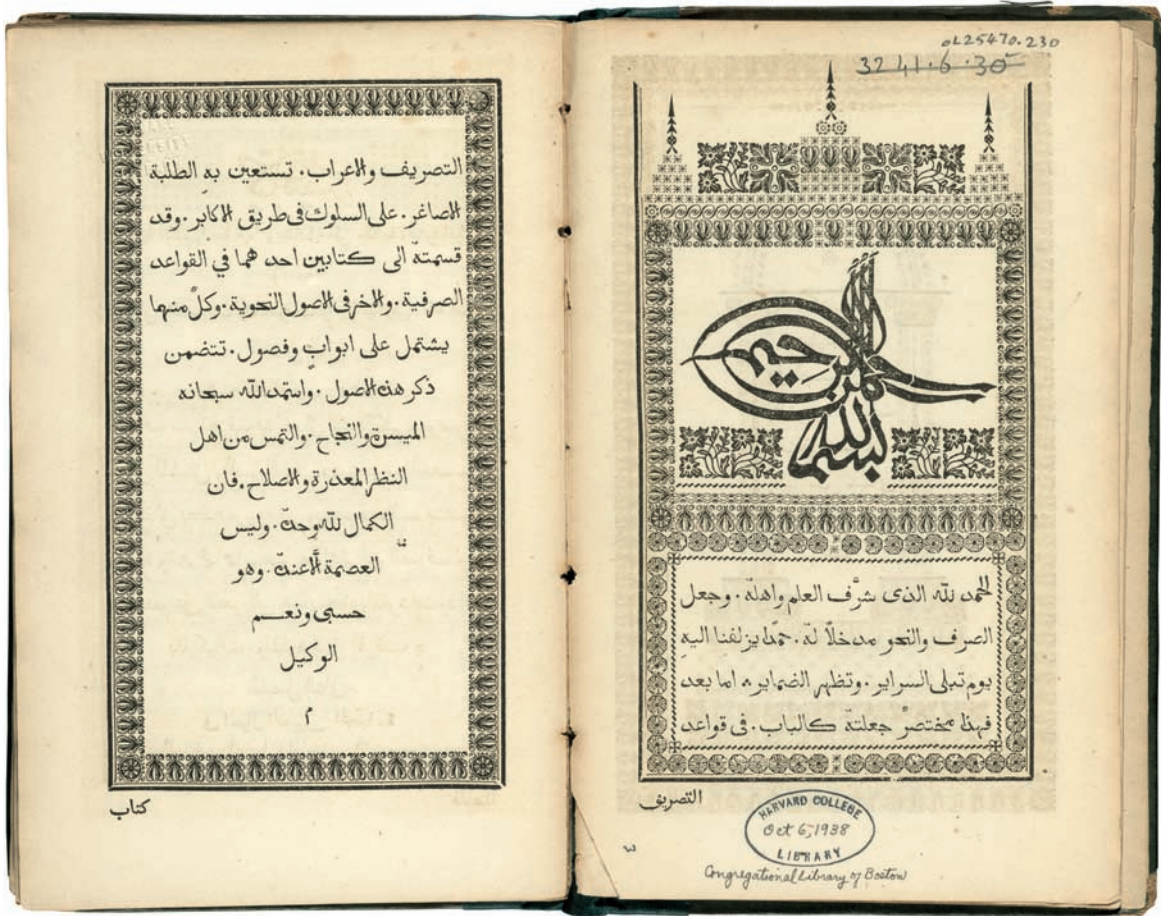 OL25470.230
3241.6.30
بسم الله الرحمن الرحيم
الحمد لله الذى شرَّف العلم واهلهٌ. وجعل
الصرف والنحو مدخلًا لهٌ. حمدًا يزلفنا اليهِ
يوم تبلى السراير. وتظهر الضماير. اما بعد
فهذا مختصرٌ جعلتهٌ كالباب. فى قواعد
التصريف
HARVARD COLLEGE
Oct 6, 1938
LIBRARY
Congregational Library of Boston
التصريف والاعراب. تستعين بهِ الطلبة
الاصاغر. على السلوك فى طريق الاكابر. وقد
قسمتهٌ الى كتابين احدهما في القواعد
الصرفية. والاخر فى الاصول النحوية. وكلٌّ منهما
يشتمل على ابوابٍ وفصول. تتضمن
ذكر هذه الاصول. واستمد الله سبحانه
الميسرة والنجاح. والتمس من اهل
النظر المعذرة والاصلاح. فان
الكمال لله وحدهٌ. وليس
العصمة الَّا عندهٌ. وهو
حسبى ونعم
الوكيل
م
كتاب